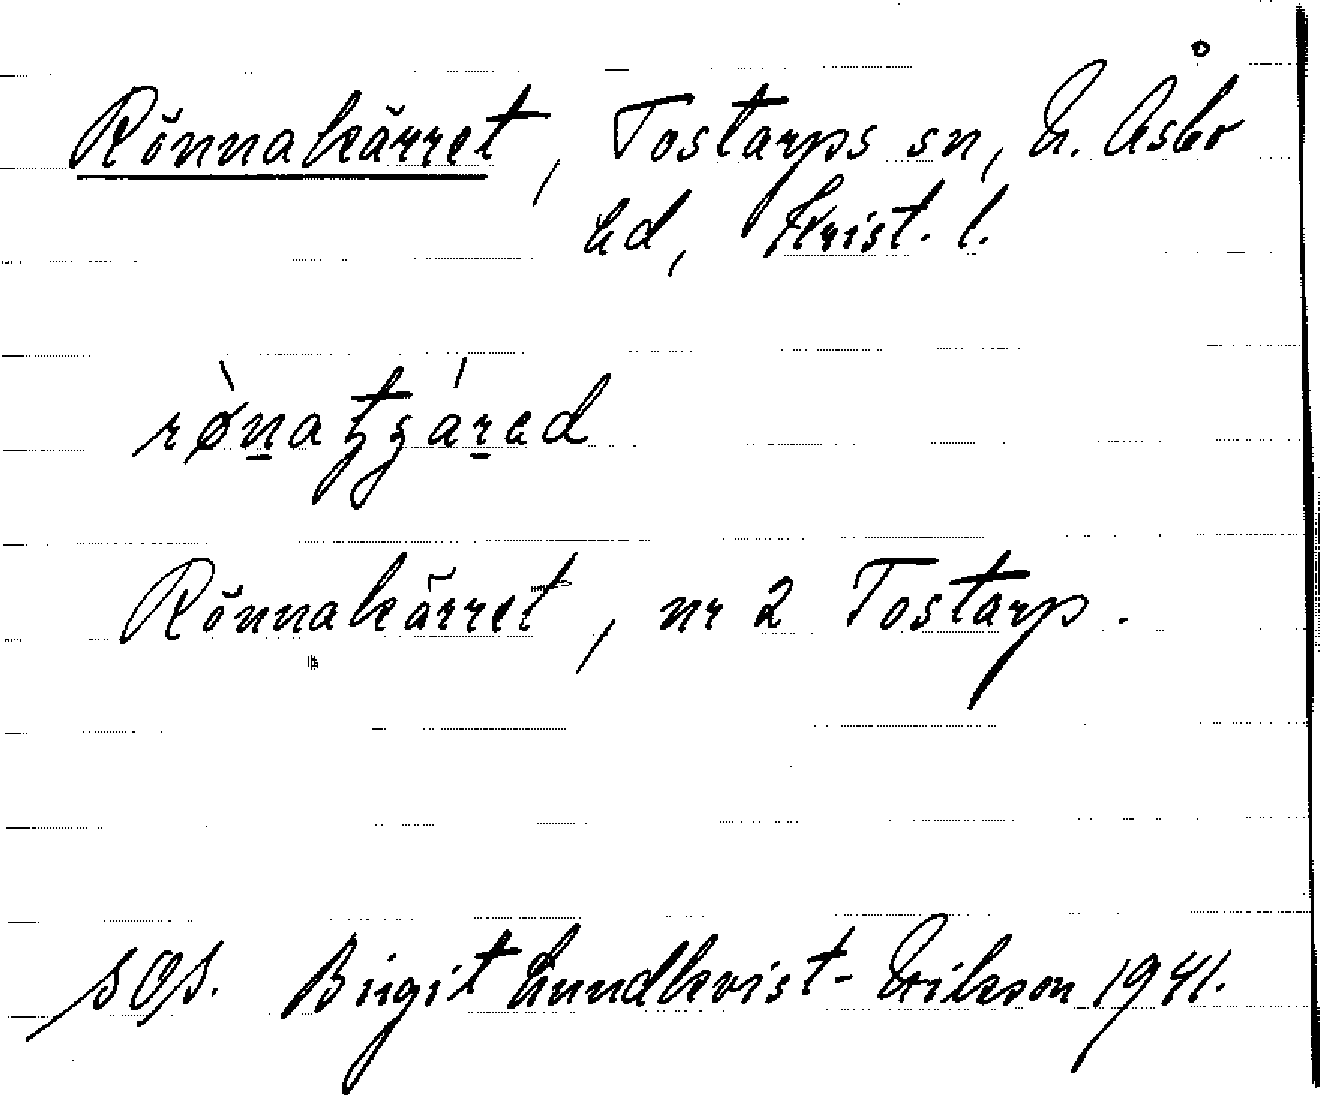 Rönnakärret, Tostarps sn, N. Åsbo
hd, Krist. l.
Rönnakärret, nr 2 Tostarp.
SOS. Birgit Lundkvist-Eriksson 1941.